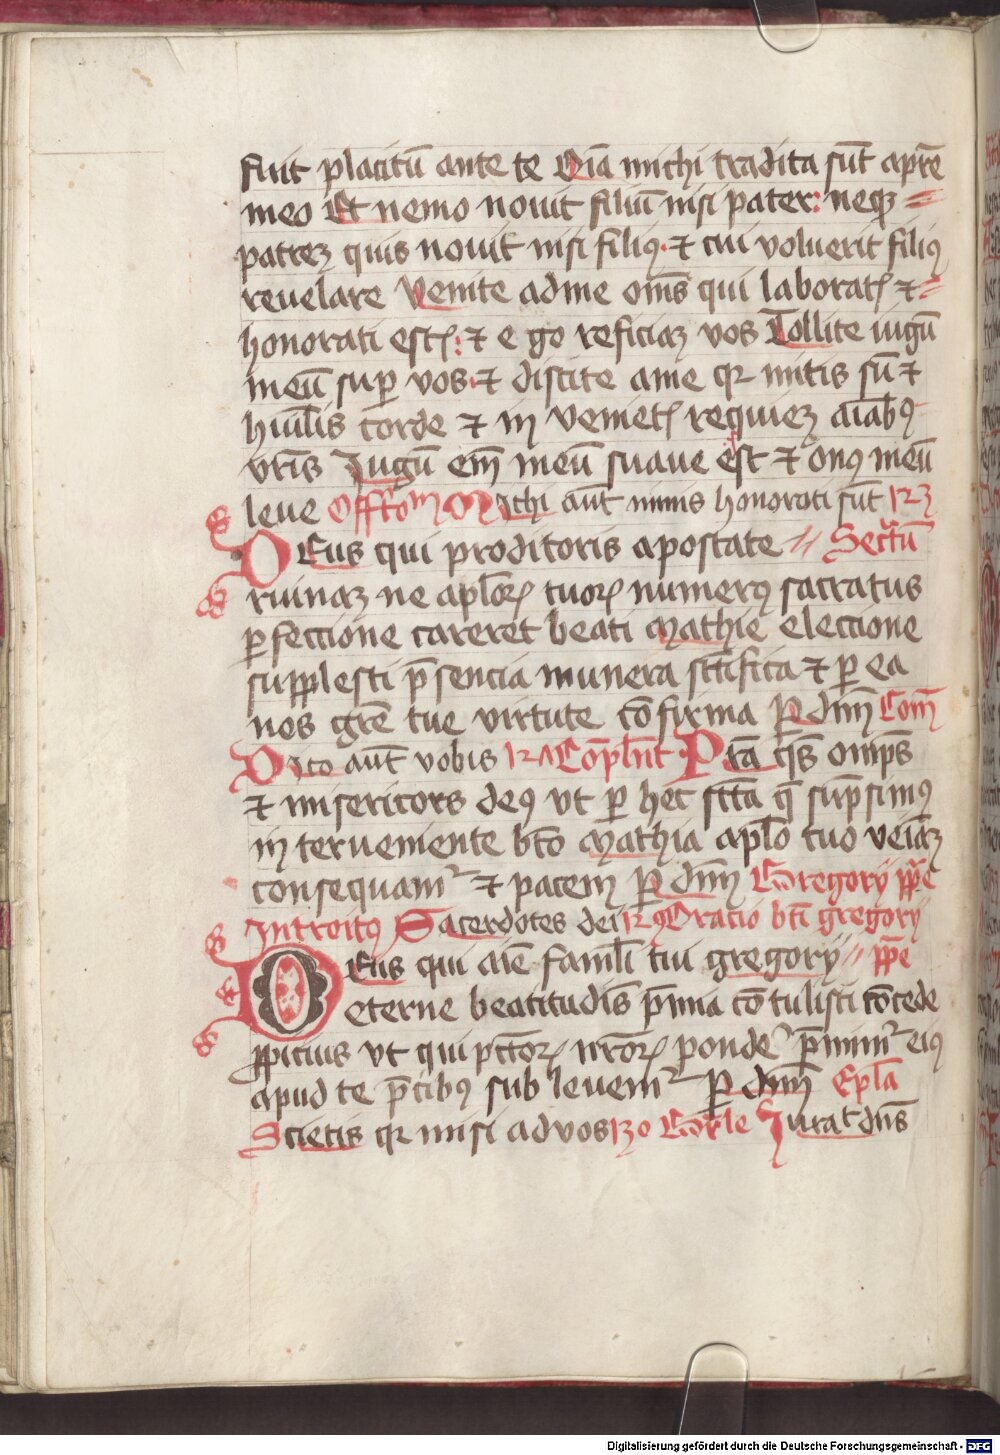 fuit placitū ante te Oīa michi tradita sūt a pr̄e
meo Et nemo nouit filiū nisi pater: neqz
patrez quis nouit nisi filiꝰ ⁊ cui voluerit filiꝰ
reuelare Venite ad me om̄s qui laboratꝭ ⁊
honorati estꝭ: ⁊ e go reficiaz vos Tollite iugū
meū suꝑ vos ⁊ discite a me qr mitis sū ⁊
hūilis corde ⁊ in venietꝭ requiez aīabꝰ
vr̄is Iugū em̄ meū suaue est ⁊ onꝰ meū
leue Offr̄om Michi aūt nimis honorati sūt
Deus qui proditoris apostate Secr̄tū
ruinaz ne apl̄oꝝ tuoꝝ numerꝰ sacratus
ꝑfeccione careret beati Mathie eleccione
supplesti p̄sencia munera sc̄tifica ⁊ ꝑ ea
nos gr̄e tue virtute cōfirma P dn̄m Com̄
Dico aūt vobis Cōpl̄nt Pr̄a qs̄ om̄ps
⁊ misericors deꝰ vt ꝑ hec sc̄ta q̄ sūpsimꝰ
in terueniente bt̄o Mathia apl̄o tuo veiāz
consequamr ⁊ pacem P dn̄m Gregorÿ pp̄e
Introitꝰ Sacerdotes dei Oratio bt̄i gregorÿ
Deus qui aīe famul̄i tui gregorÿ pp̄e
eterne beatitudīs p̄mia cōtulisti cōcede
ꝓpicius vt qui pc̄tōꝝ nr̄oꝝ pondeꝰ p̄mimr eiꝰ
apud te p̄cibꝰ sub leuemr P dn̄m Epl̄a
Scietis qr misi ad vos Iurat dn̄s
Digitalisierung gefördert durch die Deutsche Forschungsgemeinschaft - DFG